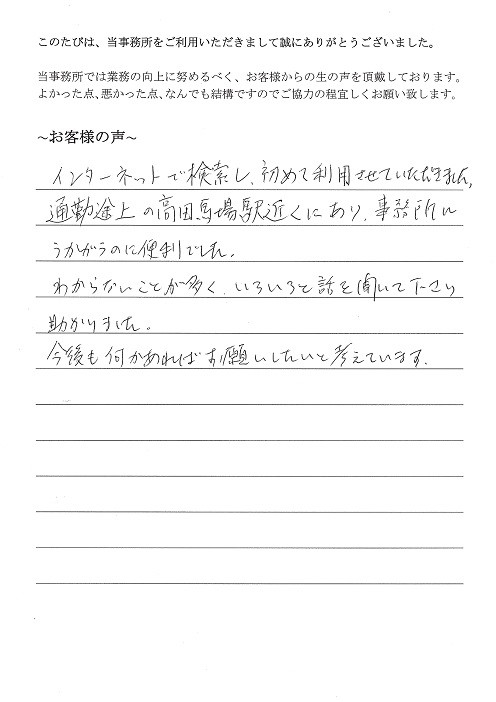 このたびは、当事務所をご利用いただきまして誠にありがとうございました。
当事務所では業務の向上に努めるべく、お客様からの生の声を頂戴しております。
よかった点、悪かった点、なんでも結構ですのでご協力の程宜しくお願い致します。
~お客様の声~
インターネットで検索し、初めて利用させていただきました。
通勤途上の高田馬場駅近くにあり、事務所に
うかがうのに便利でした。
わからないことが多く、いろいろと話を聞いて下さり
助かりました。
今後も何かあればお願いしたいと考えています。